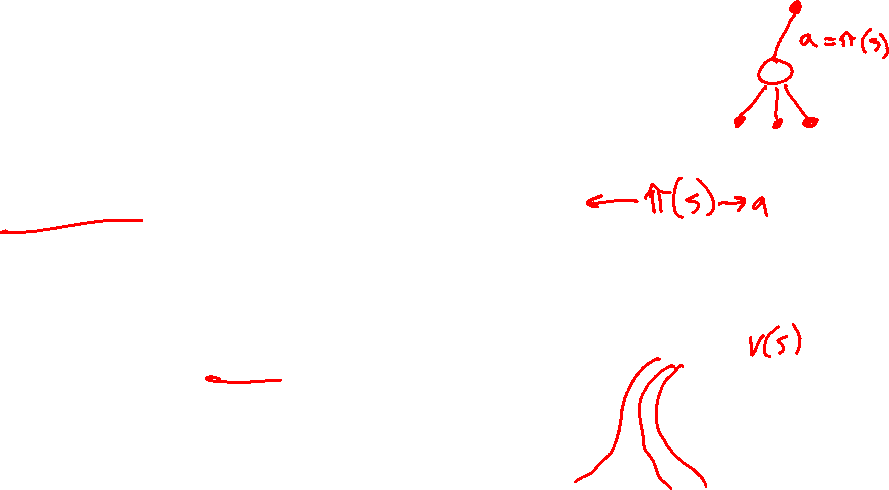 a = π(s)
← π(s) → a
V(s)